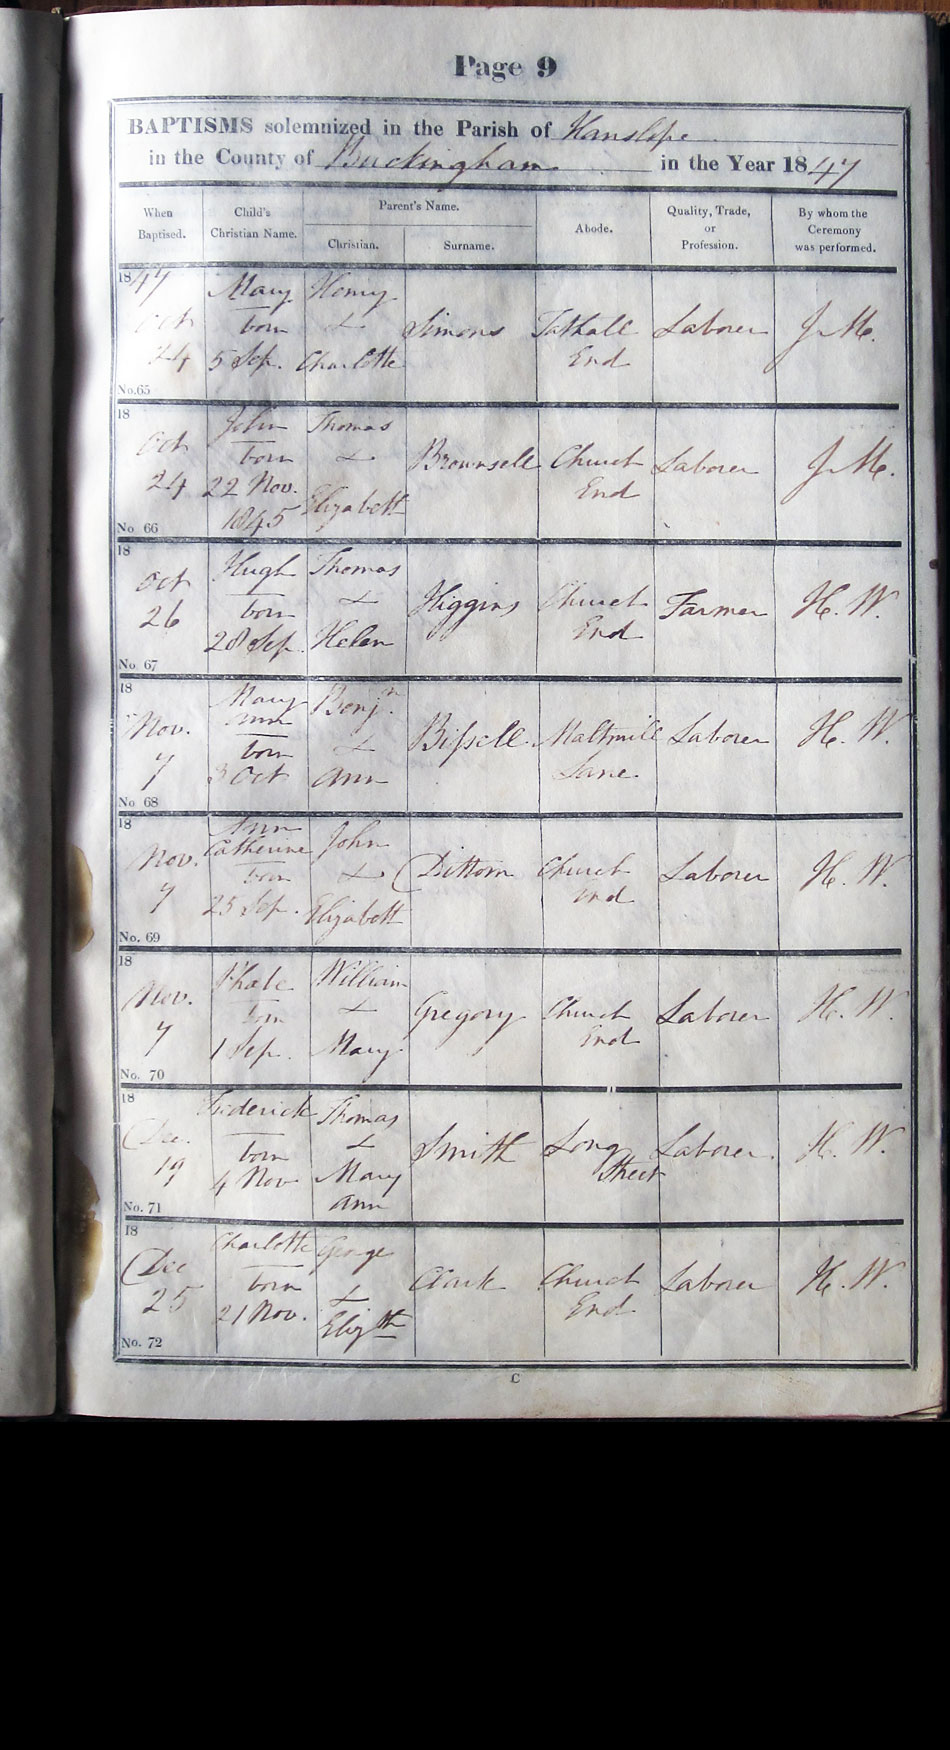 Page 9
BAPTISMS solemnized in the Parish of Hanslope
in the County of Buckingham in the Year 1847
When Baptised.
Child's Christian Name.
Parent's Name.
Christian.
Surname.
Abode.
Quality, Trade, or Profession.
By whom the Ceremony was performed.
1847
Oct
24
No.65
Mary
born
5 Sep.
Henry
&
Charlotte
Simons
Tathall
End
Laborer
J. M.
18
Oct
24
No. 66
John
born
22 Nov.
1845
Thomas
&
Elizabeth
Brownsell
Church
End
Laborer
J. M.
18
Oct
26
No. 67
Hugh
born
28 Sep.
Thomas
&
Helen
Higgins
Church
End
Farmer
H. W.
18
Nov.
7
No. 68
Mary
Ann
born
3 Oct
Benjn.
&
Ann
Bissell
Maltmill
Lane
Laborer
H. W.
18
Nov.
7
No. 69
Ann
Catherine
born
Sep.
John
&
Elizabeth
Church
End
Laborer
H. W.
18
Nov.
7
No. 70
born
1 Sep.
William
&
Mary
Gregory
Church
End
Laborer
H. W.
18
Dec.
19
No. 71
Frederick
born
4 Nov
Thomas
&
Mary
Ann
Smith
Long
Street
Laborer.
H. W.
18
Dec
25
No. 72
Charlotte
born
21 Nov.
George
&
Elizth
Clark
Church
End
Laborer
H. W.
C